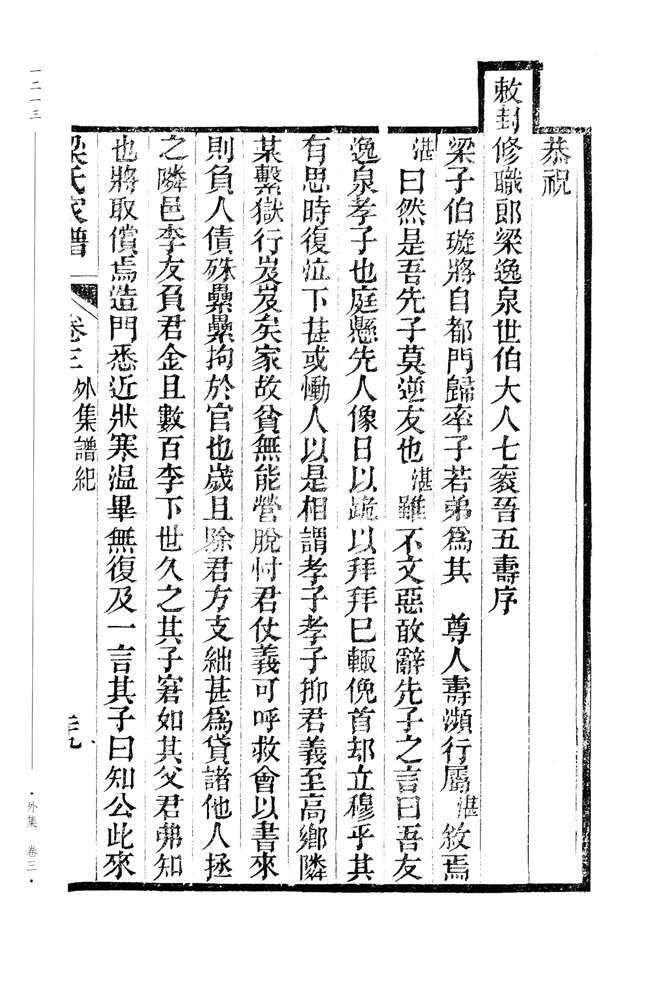 恭祝
敕封修職郎梁逸泉世伯大人七袠晉五壽序
梁子伯璇將自都門歸率子若弟爲其　尊人壽瀕行屬湛敘焉
湛曰然是吾先子莫逆友也湛雖不文惡敢辭先子之言曰吾友
逸泉孝子也庭懸先人像日以跪以拜拜巳輒俛首却立穆乎其
有思時復泣下甚或慟人以是相謂孝子孝子抑君義至高鄉隣
某繫獄行岌岌矣家故貧無能營脫忖君仗義可呼救會以書來
則負人債殊纍纍拘於官也歲且除君方支絀甚爲貸諸他人拯
之隣邑李友負君金且數百李下世久之其子窘如其父君弗知
也將取償焉造門悉近狀寒溫畢無復及一言其子曰知公此來
梁氏家譜　卷三　外集譜紀　
一二一三
·外集　卷三·